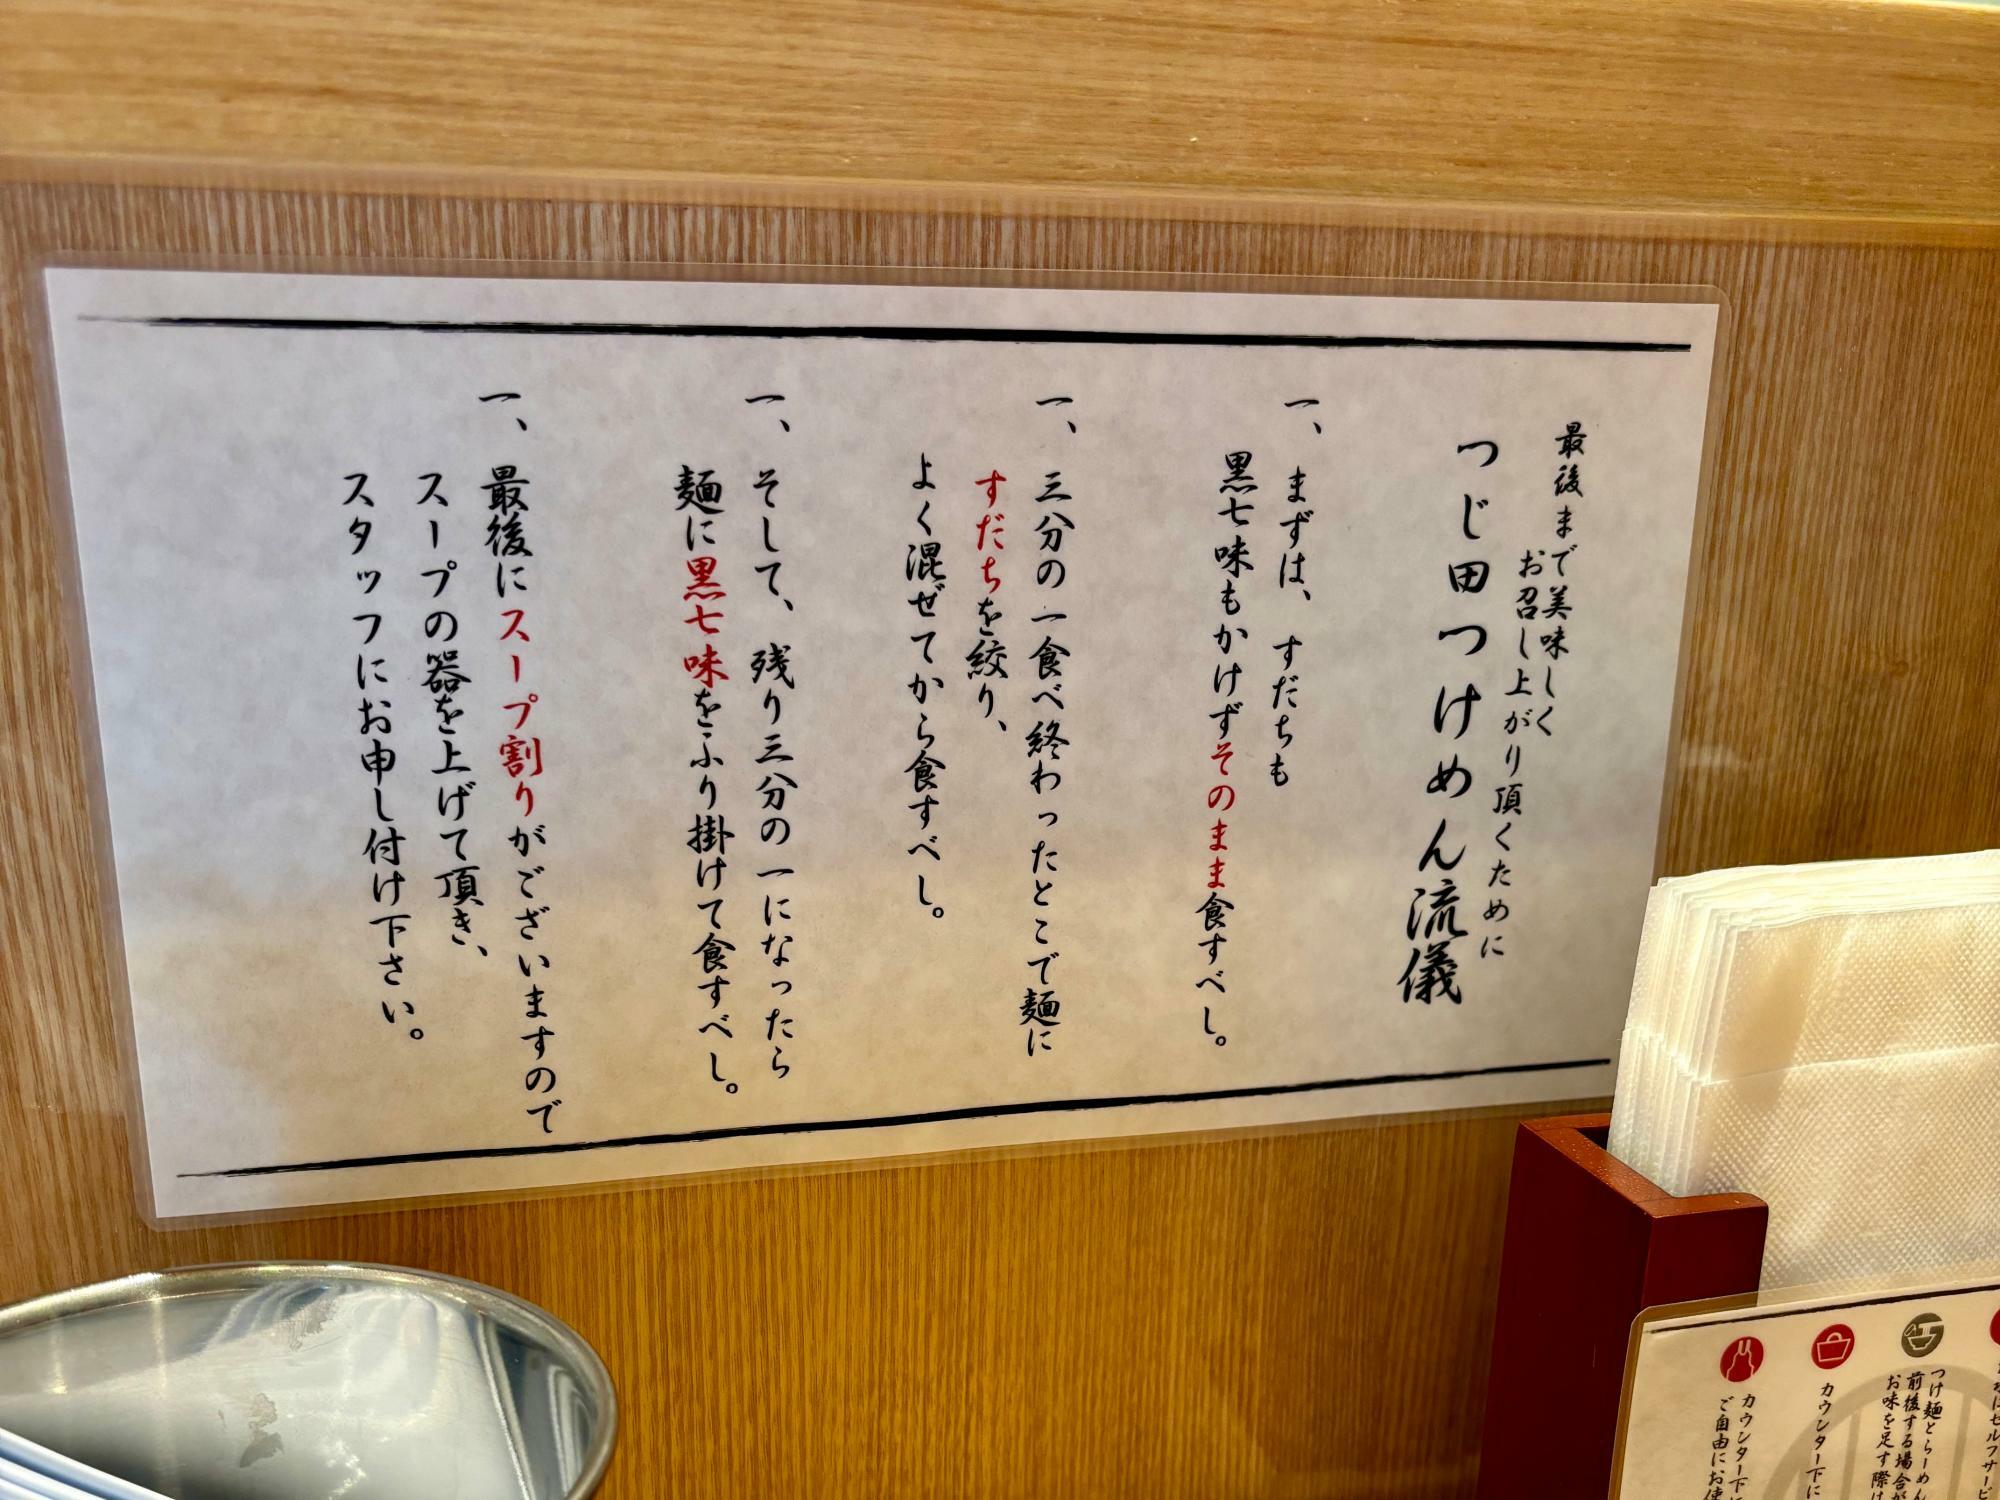 最後まで美味しく
お召し上がり頂くために
つじ田つけめん流儀
一、まずは、すだちも
黒七味もかけずそのまま食すべし。
一、三分の一食べ終わったとこで麺に
すだちを絞り、
よく混ぜてから食すべし。
一、そして、残り三分の一になったら
麺に黒七味をふり掛けて食すべし。
一、最後にスープ割りがございますので
スープの器を上げて頂き、
スタッフにお申し付け下さい。
セルフサービ
つけ麺とらーめん
前後する場合が
お味を足す際は
カウンター下に
カウンター下に
ご自由にお使